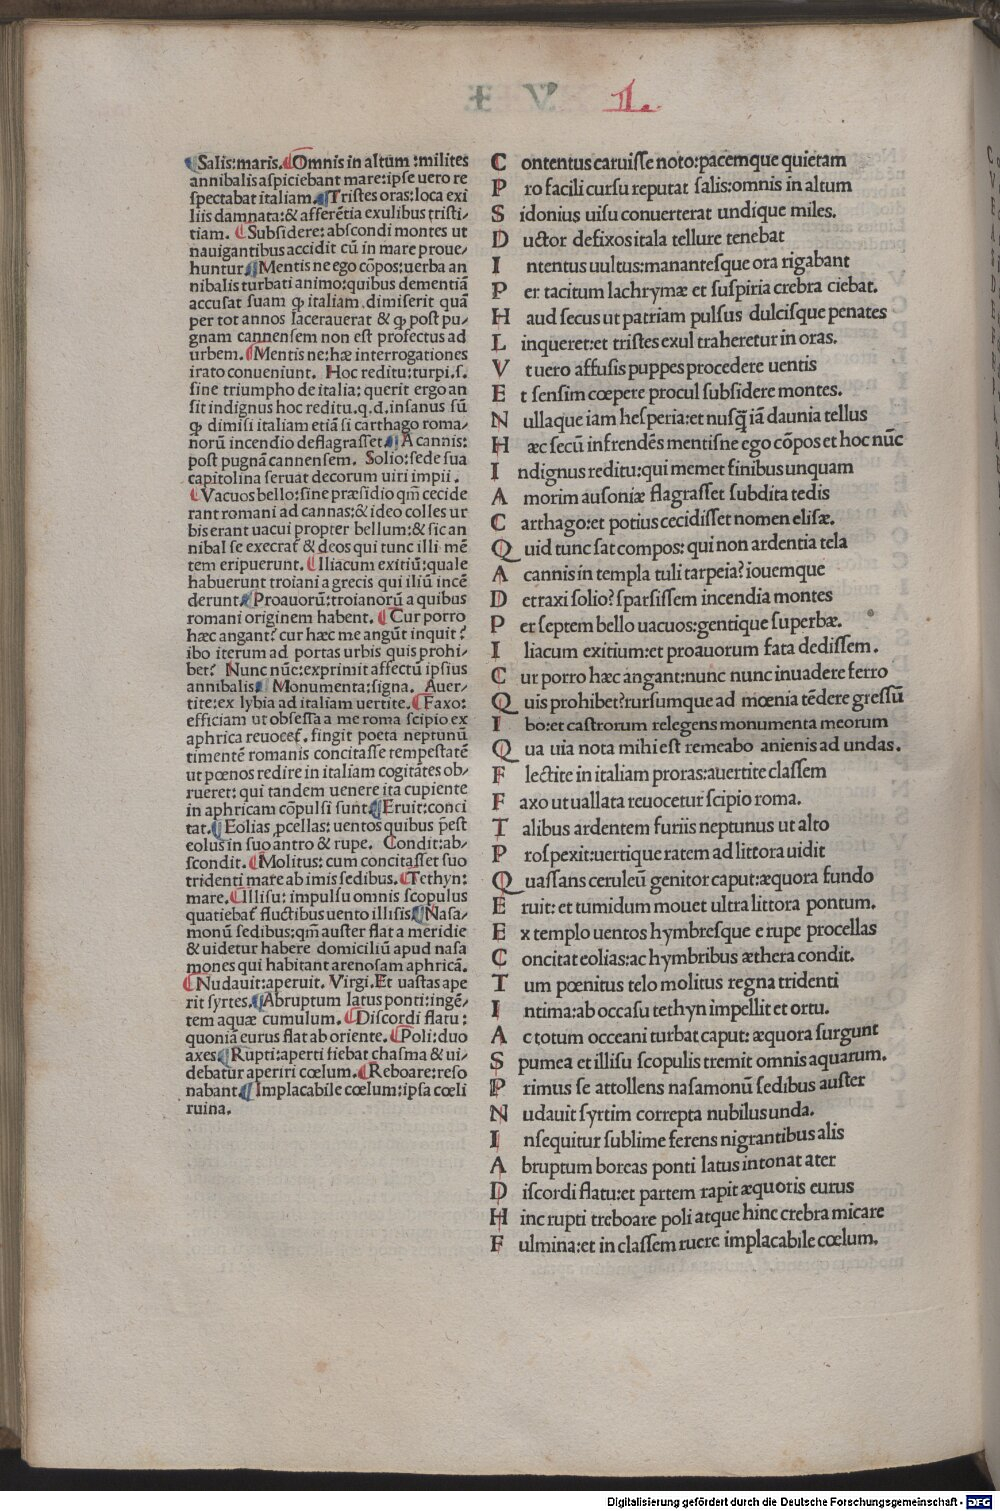 L
Salis:maris. Omnis in altum:milites
annibalis aſpiciebant mare:ipſe uero re
ſpectabat italiam. Triſtes oras:loca exi
liis damnata:& afferētia exulibus triſti-
tiam. Subſidere:abſcondi montes ut
nauigantibus accidit cū in mare proue-
huntur. Mentis ne ego cōpos:uerba an
nibalis turbati animo:quibus dementiā
accuſat ſuam ꝙ italiam dimiſerit quā
per tot annos lacerauerat & ꝙ poſt pu-
gnam cannenſem non eſt profectus ad
urbem. Mentis ne:hæ interrogationes
irato conueniunt. Hoc reditu:turpi.ſ.
ſine triumpho de italia:querit ergo an
ſit indignus hoc reditu.q.d.inſanus ſū
ꝙ dimiſi italiam etiā ſi carthago roma-
norū incendio deflagraſſet. A cannis:
poſt pugnā cannenſem. Solio:ſede ſua
capitolina ſeruat decorum uiri impii.
Vacuos bello:ſine præſidio qm̄ cecide
rant romani ad cannas:& ideo colles ur
bis erant uacui propter bellum:& ſic an
nibal ſe execrat̄ & deos qui tunc illi mē
tem eripuerunt. Iliacum exitiū:quale
habuerunt troiani a grecis qui iliū incē
derunt. Proauorū:troianorū a quibus
romani originem habent. Cur porro
hæc angant? cur hæc me angūt inquit?
ibo iterum ad portas urbis quis prohi-
bet? Nunc nūc:exprimit affectū ipſius
annibalis. Monumenta:ſigna. Auer-
tite:ex lybia ad italiam uertite. Faxo:
efficiam ut obſeſſa a me roma ſcipio ex
aphrica reuocet̄. fingit poeta neptunū
timentē romanis concitaſſe tempeſtatē
ut pœnos redire in italiam cogitātes ob-
rueret: qui tandem uenere ita cupiente
in aphricam cōpulſi ſunt. Eruit:conci
tat. Eolias ꝓcellas: uentos quibus p̄eſt
eolus in ſuo antro & rupe. Condit:ab-
ſcondit. Molitus: cum concitaſſet ſuo
tridenti mare ab imis ſedibus. Tethyn:
mare. Illiſu: impulſu omnis ſcopulus
quatiebat̄ fluctibus uento illiſis. Naſa-
monū ſedibus:qm̄ auſter flat a meridie
& uidetur habere domiciliū apud naſa
mones qui habitant arenoſam aphricā.
Nudauit:aperuit. Virgi.Et uaſtas ape
rit ſyrtes. Abruptum latus ponti:ingē-
tem aquæ cumulum. Diſcordi flatu:
quoniā eurus flat ab oriente. Poli:duo
axes. Rupti:aperti fiebat chaſma & ui-
debatur aperiri cœlum. Reboare:reſo
nabant. Implacabile cœlum:ipſa cœli
ruina.
C ontentus caruiſſe noto:pacemque quietam
P ro facili curſu reputat ſalis:omnis in altum
S idonius uiſu conuerterat undique miles.
D uctor defixos itala tellure tenebat
I ntentus uultus:manantesque ora rigabant
P er tacitum lachrymæ et ſuſpiria crebra ciebat.
H aud ſecus ut patriam pulſus dulciſque penates
L inqueret:et triſtes exul traheretur in oras.
V t uero affuſis puppes procedere uentis
E t ſenſim cœpere procul ſubſidere montes.
N ullaque iam heſperia:et nuſꝗ̄ iā daunia tellus
H æc ſecū infrendēs mentiſne ego cōpos et hoc nūc
I ndignus reditu:qui memet finibus unquam
A morim auſoniæ flagraſſet ſubdita tedis
C arthago:et potius cecidiſſet nomen eliſæ.
Q uid tunc ſat compos: qui non ardentia tela
A cannis in templa tuli tarpeia?iouemque
D etraxi ſolio?ſparſiſſem incendia montes
P er ſeptem bello uacuos:gentique ſuperbæ.
I liacum exitium:et proauorum fata dediſſem.
C ur porro hæc angant:nunc nunc inuadere ferro
Q uis prohibet?rurſumque ad mœnia tēdere greſſū
I bo:et caſtrorum relegens monumenta meorum
Q ua uia nota mihi eſt remeabo anienis ad undas.
F lectite in italiam proras:auertite claſſem
F axo ut uallata reuocetur ſcipio roma.
T alibus ardentem furiis neptunus ut alto
P roſpexit:uertique ratem ad littora uidit
Q uaſſans ceruleū genitor caput:æquora fundo
E ruit: et tumidum mouet ultra littora pontum.
E x templo uentos hymbreſque e rupe procellas
C oncitat eolias:ac hymbribus æthera condit.
T um pœnitus telo molitus regna tridenti
I ntima:ab occaſu tethyn impellit et ortu.
A c totum occeani turbat caput: æquora ſurgunt
S pumea et illiſu ſcopulis tremit omnis aquarum.
P rimus ſe attollens naſamonū ſedibus auſter
N udauit ſyrtim correpta nubilus unda.
I nſequitur ſublime ferens nigrantibus alis
A bruptum boreas ponti latus intonat ater
D iſcordi flatu:et partem rapit æquoris eurus
H inc rupti treboare poli atque hinc crebra micare
F ulmina:et in claſſem ruere implacabile cœlum.
Digitalisierung gefördert durch die Deutsche Forschungsgemeinschaft - DFG